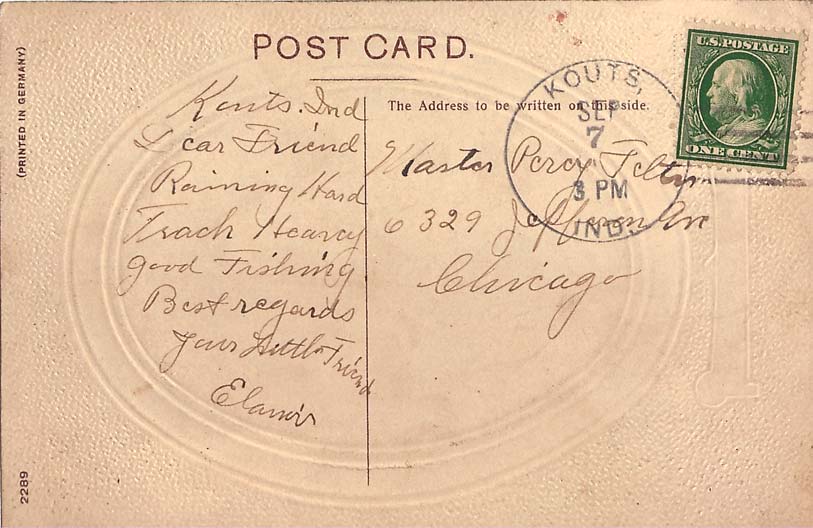 POST CARD.
(PRINTED IN GERMANY)
2289
U.S. POSTAGE
ONE CENT
KOUTS,
SEP
7
3 PM
IND.
The Address to be written on this side.
Kouts. Ind
Dear Friend
Raining Hard
Track Heavy
good Fishing
Best regards
Your Little Friend
Master Percy
6329 Jefferson Ave
Chicago